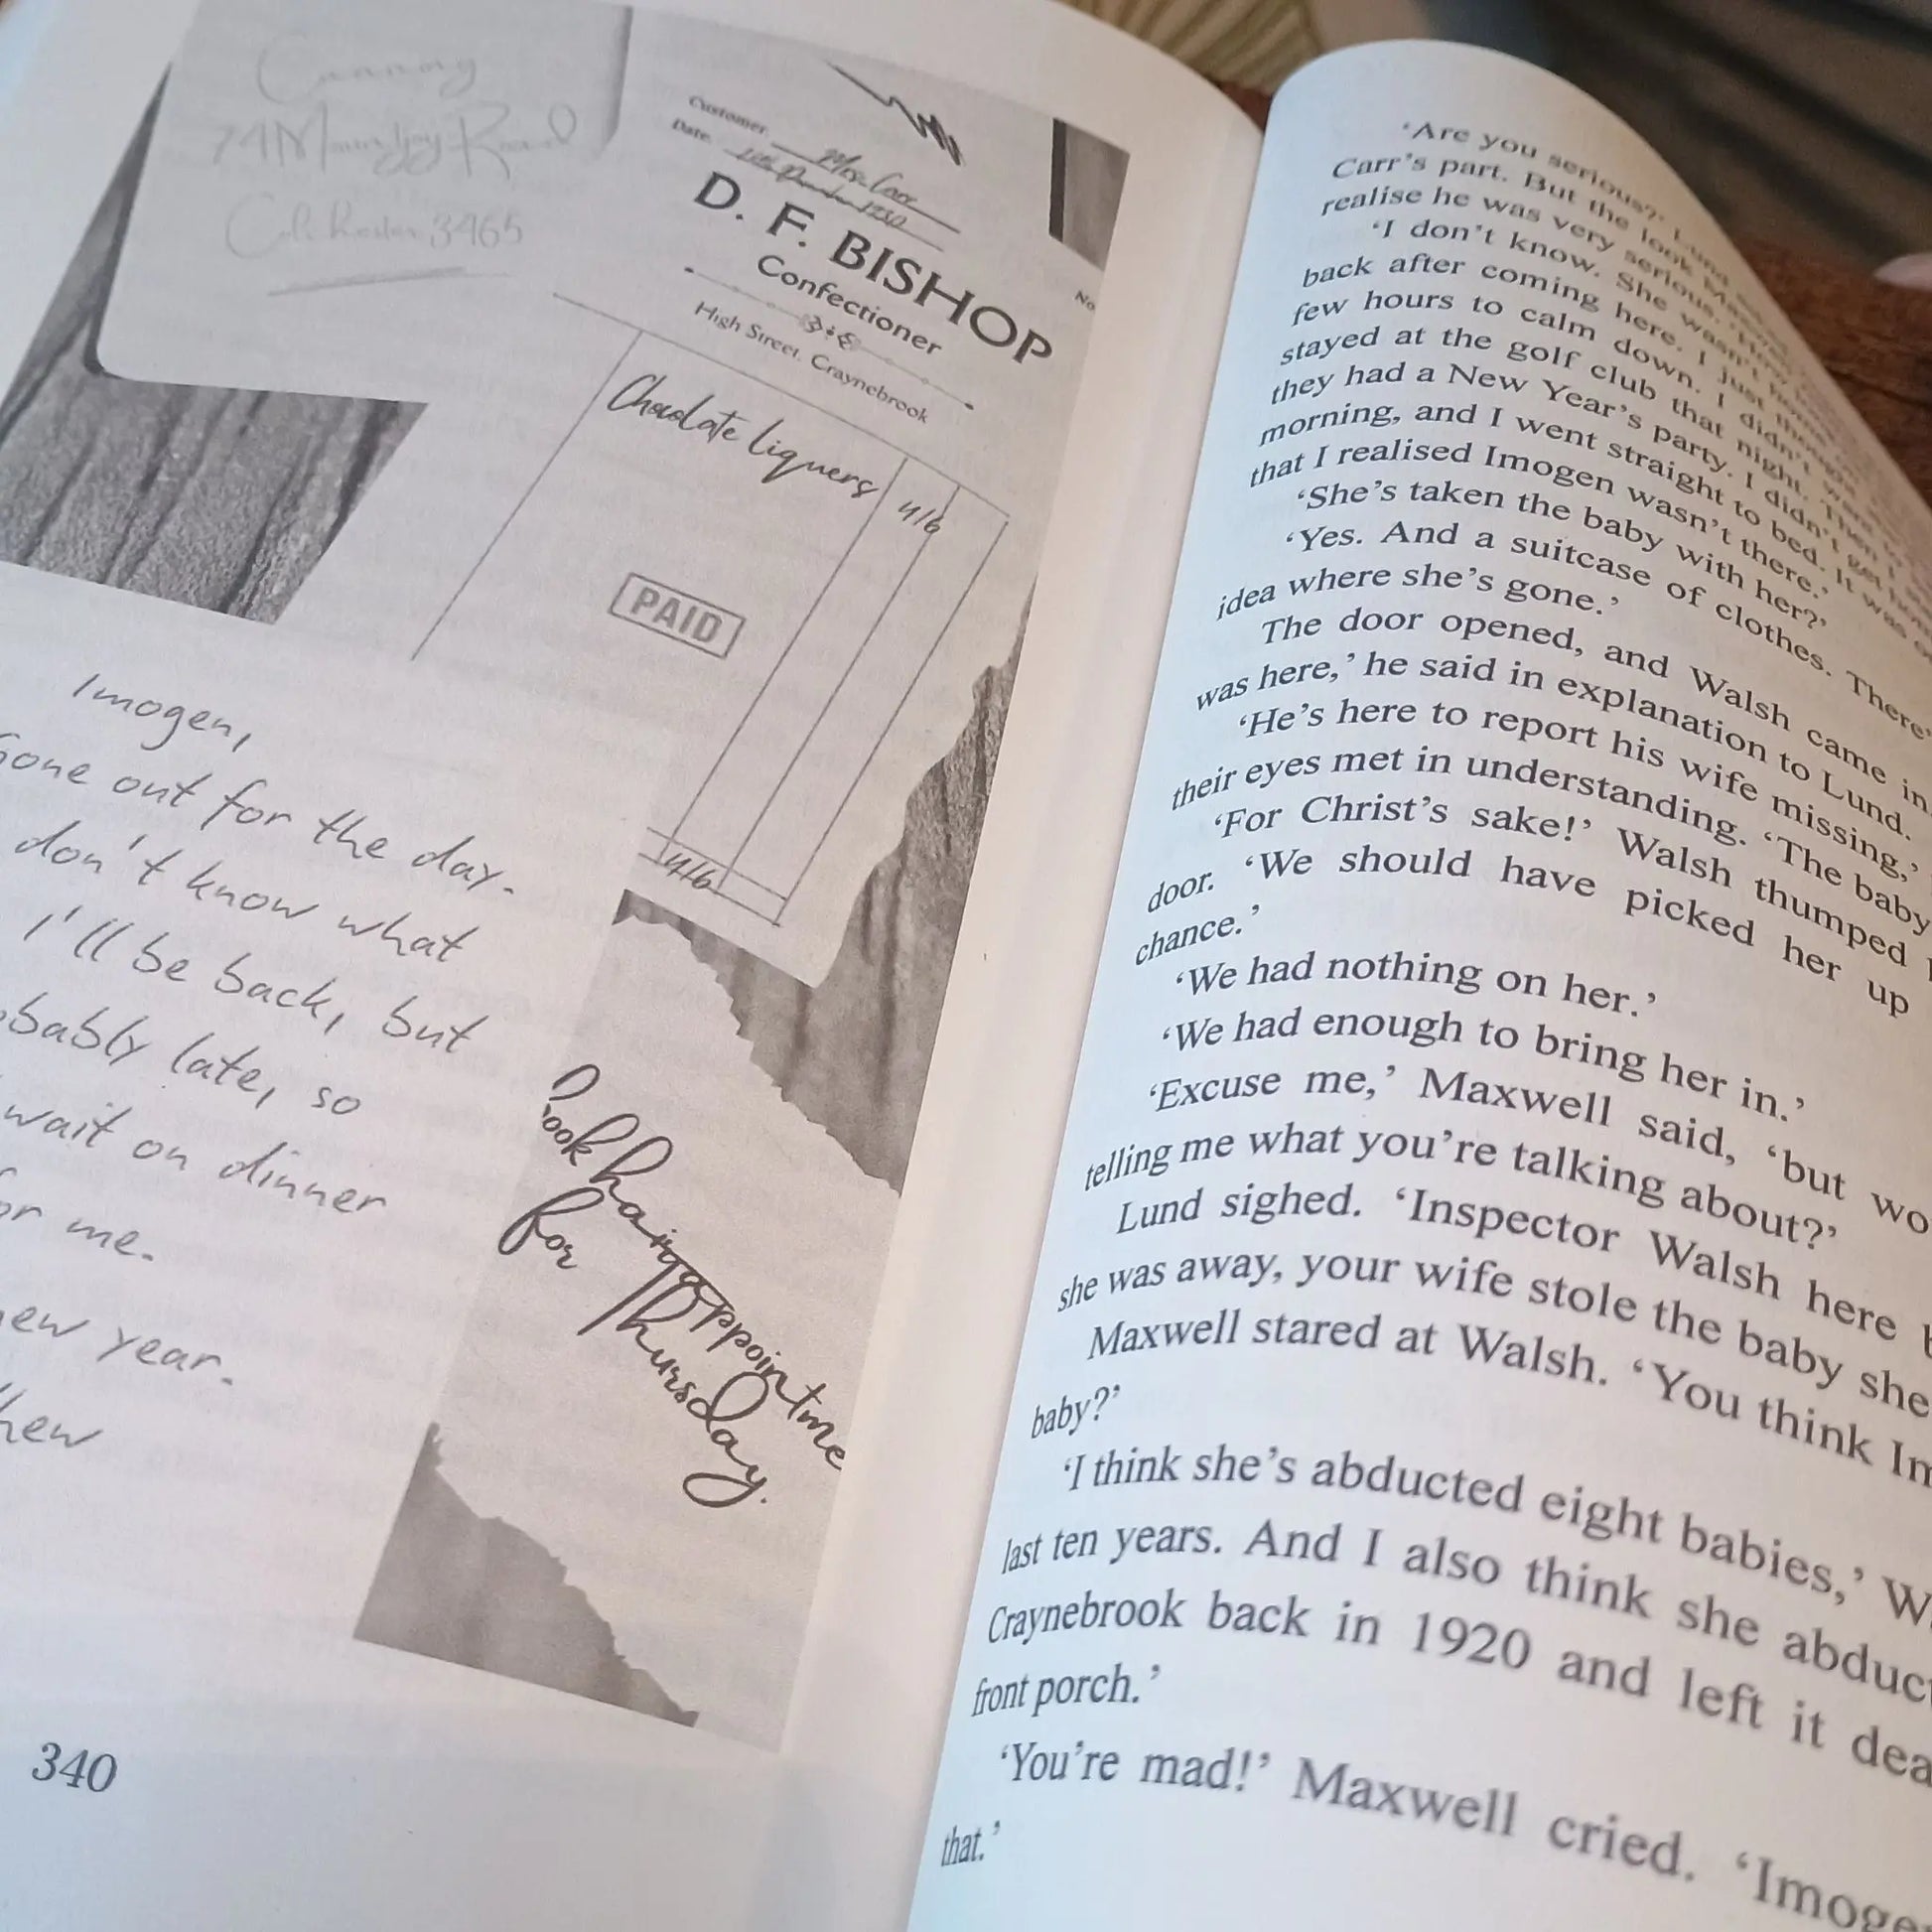 74
3465
Customer
Mrs. Carr
Date
D. F. BISHOP
Confectioner
No
High Street, Craynebrook
Chocolate liquers
4/6
PAID
4/6
Imogen,
Gone out for the day.
don't know what
I'll be back, but
late, so
wait on dinner
me.
year.
book hair appointme
for Thursday.
340
'Are you serious?' Lund
Carr's part. But the look
realise he was very serious.
'I don't know. She wasn't
back after coming here. I just
few hours to calm down. I didn't
stayed at the golf club that night. Then
they had a New Year's party. I didn't get
morning, and I went straight to bed. It was
that I realised Imogen wasn't there.'
'She's taken the baby with her?'
'Yes. And a suitcase of clothes. There'
idea where she's gone.'
The door opened, and Walsh came in.
was here,' he said in explanation to Lund.
'He's here to report his wife missing,'
their eyes met in understanding. 'The baby
'For Christ's sake!' Walsh thumped
door. 'We should have picked her up
chance.'
'We had nothing on her.'
'We had enough to bring her in.'
'Excuse me,' Maxwell said, 'but
telling me what you're talking about?'
Lund sighed. 'Inspector Walsh here
she was away, your wife stole the baby she
Maxwell stared at Walsh. 'You think
baby?'
'I think she's abducted eight babies,'
last ten years. And I also think she
Craynebrook back in 1920 and left it
front porch.'
'You're mad!' Maxwell cried.
that.'